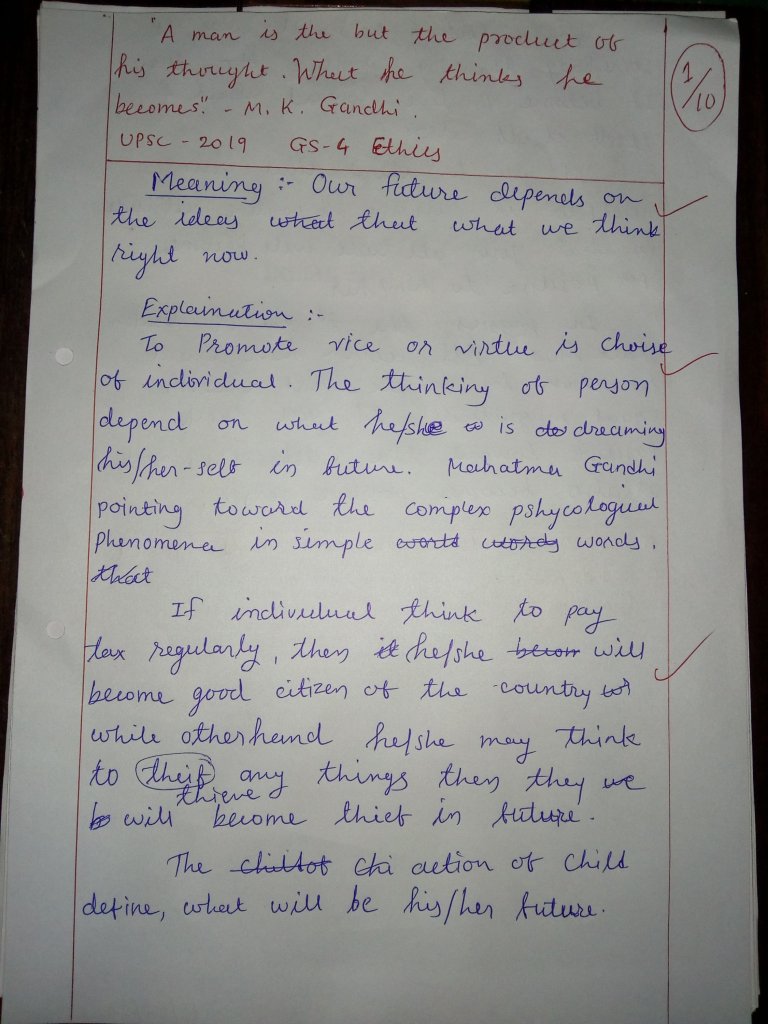 "A man is the but the product of
his thought. What he thinks he
becomes". - M. K. Gandhi.
UPSC - 2019 GS-4 Ethics
1/10
Meaning :- Our future depends on
the ideas what that what we think
right now.
Explaination :-
To Promote vice or virtue is choise
of individual. The thinking of person
depend on what he/she is do dreaming
his/her-self in future. Mahatma Gandhi
pointing toward the complex pshycological
Phenomena in simple words words.
that
If indivudual think to pay
tax regularly, then it he/she will
become good citizen of the country
while otherhand he/she may think
to theif any things then they we
thieve
will become thief in future.
The chi action of child
define, what will be his/her future.